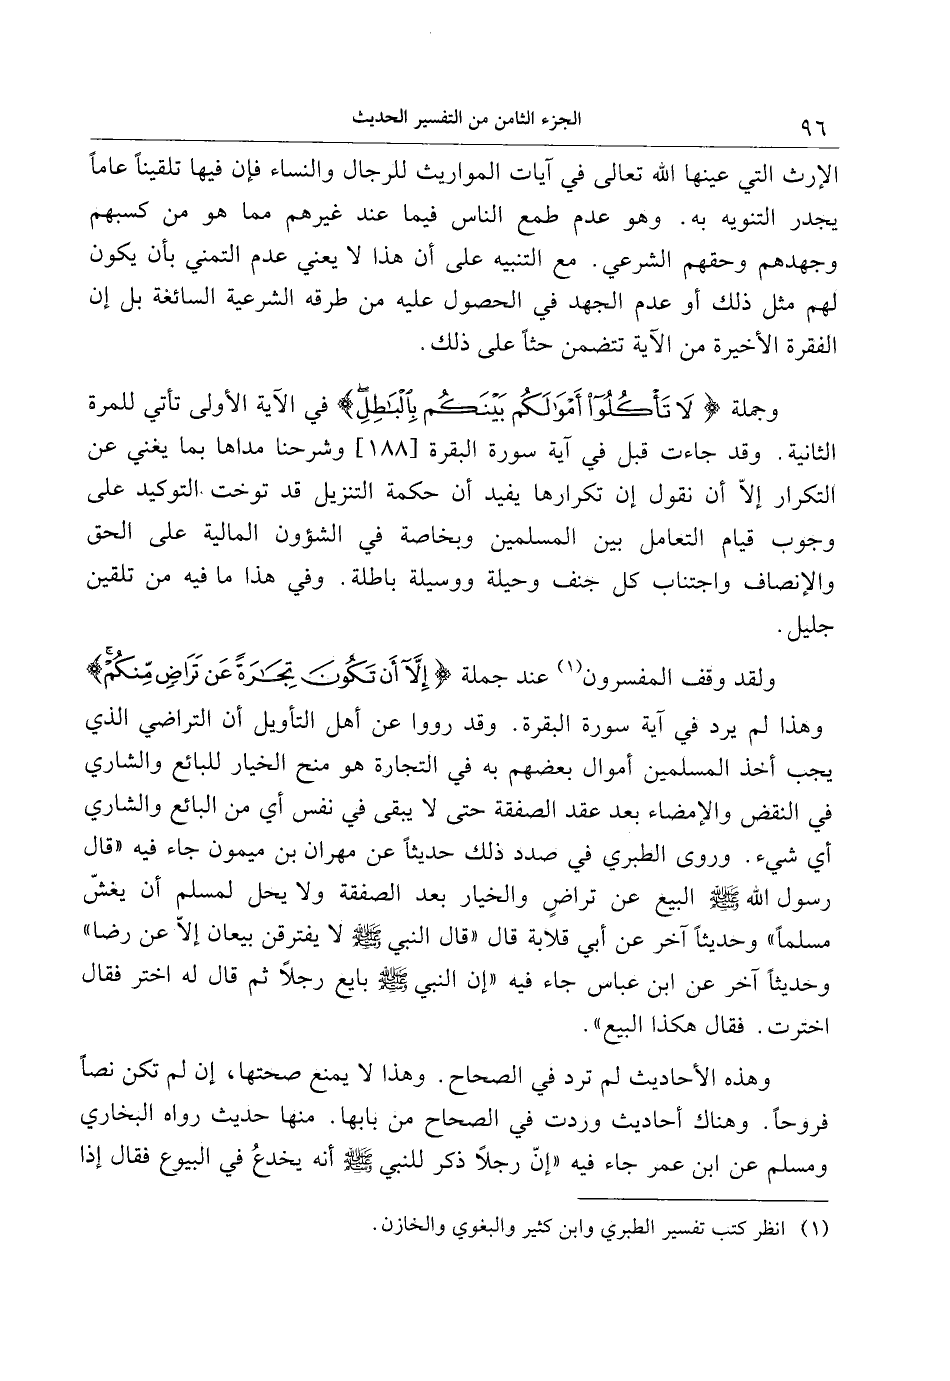 ٩٦
الجزء الثامن من التفسير الحديث
الإرث التي عينها الله تعالى في آيات المواريث للرجال والنساء فإن فيها تلقيناً عاماً
يجدر التنويه به. وهو عدم طمع الناس فيما عند غيرهم مما هو من كسبهم
وجهدهم وحقهم الشرعي. مع التنبيه على أن هذا لا يعني عدم التمني بأن يكون
لهم مثل ذلك أو عدم الجهد في الحصول عليه من طرقه الشرعية السائغة بل إن
الفقرة الأخيرة من الآية تتضمن حثاً على ذلك.
وجملة ﴿ لَا تَأْكُلُوٓا۟ أَمْوَٰلَكُم بَيْنَكُم بِٱلْبَٰطِلِۖ﴾ في الآية الأولى تأتي للمرة
الثانية. وقد جاءت قبل في آية سورة البقرة [١٨٨] وشرحنا مداها بما يغني عن
التكرار إلاّ أن نقول إن تكرارها يفيد أن حكمة التنزيل قد توخت التوكيد على
وجوب قيام التعامل بين المسلمين وبخاصة في الشؤون المالية على الحق
والإنصاف واجتناب كل جنف وحيلة ووسيلة باطلة. وفي هذا ما فيه من تلقين
جليل.
ولقد وقف المفسرون(١) عند جملة ﴿ إِلَّآ أَن تَكُونَ تِجَٰرَةً عَن تَرَاضٍ مِّنكُمْۚ﴾
وهذا لم يرد في آية سورة البقرة. وقد رووا عن أهل التأويل أن التراضي الذي
يجب أخذ المسلمين أموال بعضهم به في التجارة هو منح الخيار للبائع والشاري
في النقض والإمضاء بعد عقد الصفقة حتى لا يبقى في نفس أي من البائع والشاري
أي شيء. وروى الطبري في صدد ذلك حديثاً عن مهران بن ميمون جاء فيه «قال
رسول الله ﷺ البيع عن تراضٍ والخيار بعد الصفقة ولا يحل لمسلم أن يغشّ
مسلماً» وحديثاً آخر عن أبي قلابة قال «قال النبي ﷺ لا يفترقن بيعان إلاّ عن رضا»
وحديثاً آخر عن ابن عباس جاء فيه «إن النبي ﷺ بايع رجلاً ثم قال له اختر فقال
اخترت. فقال هكذا البيع».
وهذه الأحاديث لم ترد في الصحاح. وهذا لا يمنع صحتها، إن لم تكن نصاً
فروحاً. وهناك أحاديث وردت في الصحاح من بابها. منها حديث رواه البخاري
ومسلم عن ابن عمر جاء فيه «إنّ رجلاً ذكر للنبي ﷺ أنه يخدعُ في البيوع فقال إذا
(١) انظر كتب تفسير الطبري وابن كثير والبغوي والخازن.